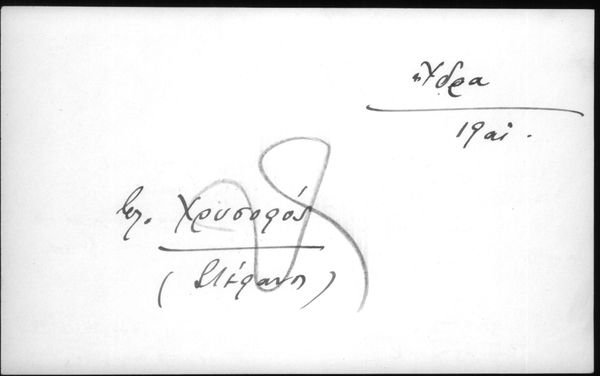 Ὕδρα
19 αἰ.
βλ. Χρυσοφός
(Στέφανη)